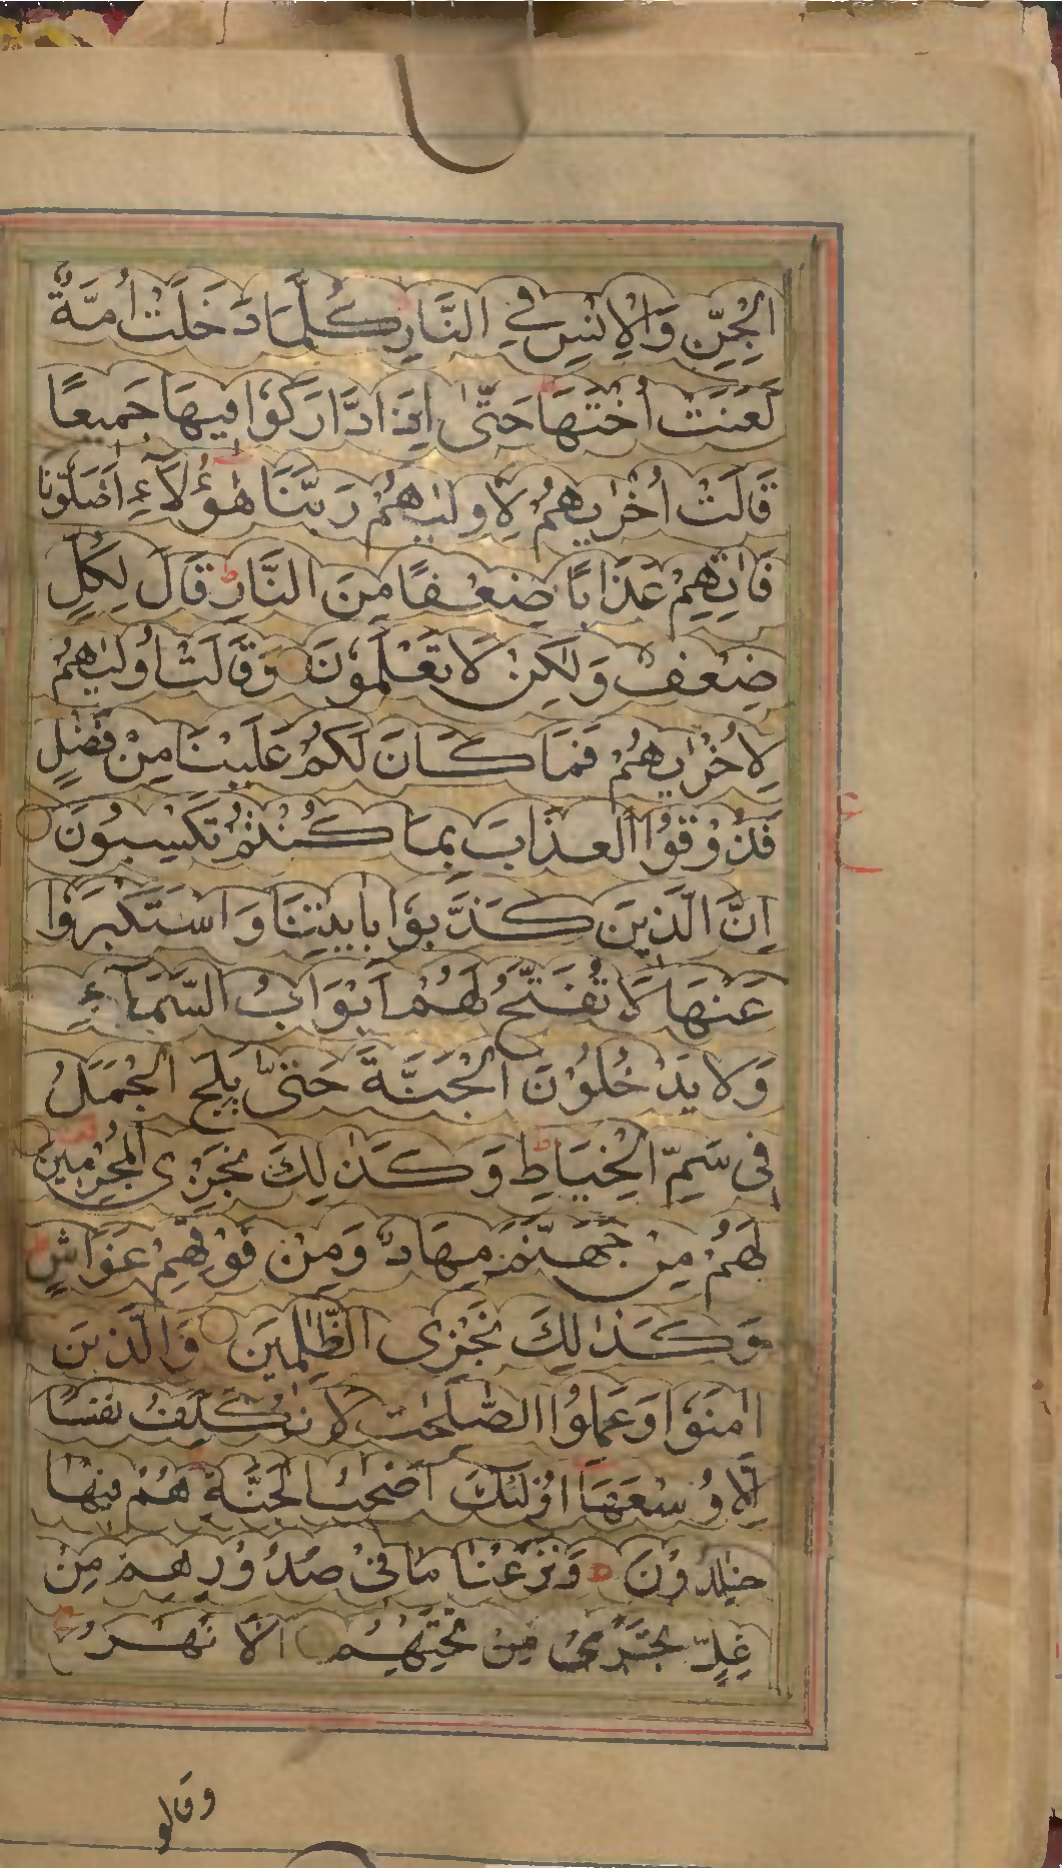 الْجِنِّ وَالْاِنْسِ فِي النَّارِ كُلَّمَا دَخَلَتْ اُمَّةٌ
لَعَنَتْ اُخْتَهَا حَتّٰى اِذَا ادَّارَكُوْا فِيهَا جَمِيعًا
قَالَتْ اُخْرٰىهُمْ لِاُولٰىهُمْ رَبَّنَا هٰؤُلَآءِ اَضَلُّوْنَا
فَاٰتِهِمْ عَذَابًا ضِعْفًا مِنَ النَّارِ قَالَ لِكُلٍّ
ضِعْفٌ وَلٰكِنْ لَا تَعْلَمُوْنَ وَقَالَتْ اُولٰىهُمْ
لِاُخْرٰىهُمْ فَمَا كَانَ لَكُمْ عَلَيْنَا مِنْ فَضْلٍ
فَذُوْقُوا الْعَذَابَ بِمَا كُنْتُمْ تَكْسِبُوْنَ
اِنَّ الَّذِينَ كَذَّبُوْا بِاٰيٰتِنَا وَاسْتَكْبَرُوْا
عَنْهَا لَا تُفَتَّحُ لَهُمْ اَبْوَابُ السَّمَآءِ
وَلَا يَدْخُلُوْنَ الْجَنَّةَ حَتّٰى يَلِجَ الْجَمَلُ
فِى سَمِّ الْخِيَاطِ وَكَذٰلِكَ نَجْزِى الْمُجْرِمِيْنَ
لَهُمْ مِنْ جَهَنَّمَ مِهَادٌ وَمِنْ فَوْقِهِمْ غَوَاشٍ
وَكَذٰلِكَ نَجْزِى الظّٰلِمِيْنَ وَالَّذِيْنَ
اٰمَنُوْا وَعَمِلُوا الصّٰلِحٰتِ لَا نُكَلِّفُ نَفْسًا
اِلَّا وُسْعَهَا اُولٰئِكَ اَصْحٰبُ الْجَنَّةِ هُمْ فِيْهَا
خٰلِدُوْنَ وَنَزَعْنَا مَا فِىْ صُدُوْرِهِمْ مِنْ
غِلٍّ تَجْرِىْ مِنْ تَحْتِهِمُ الْاَنْهٰرُ
وقالو